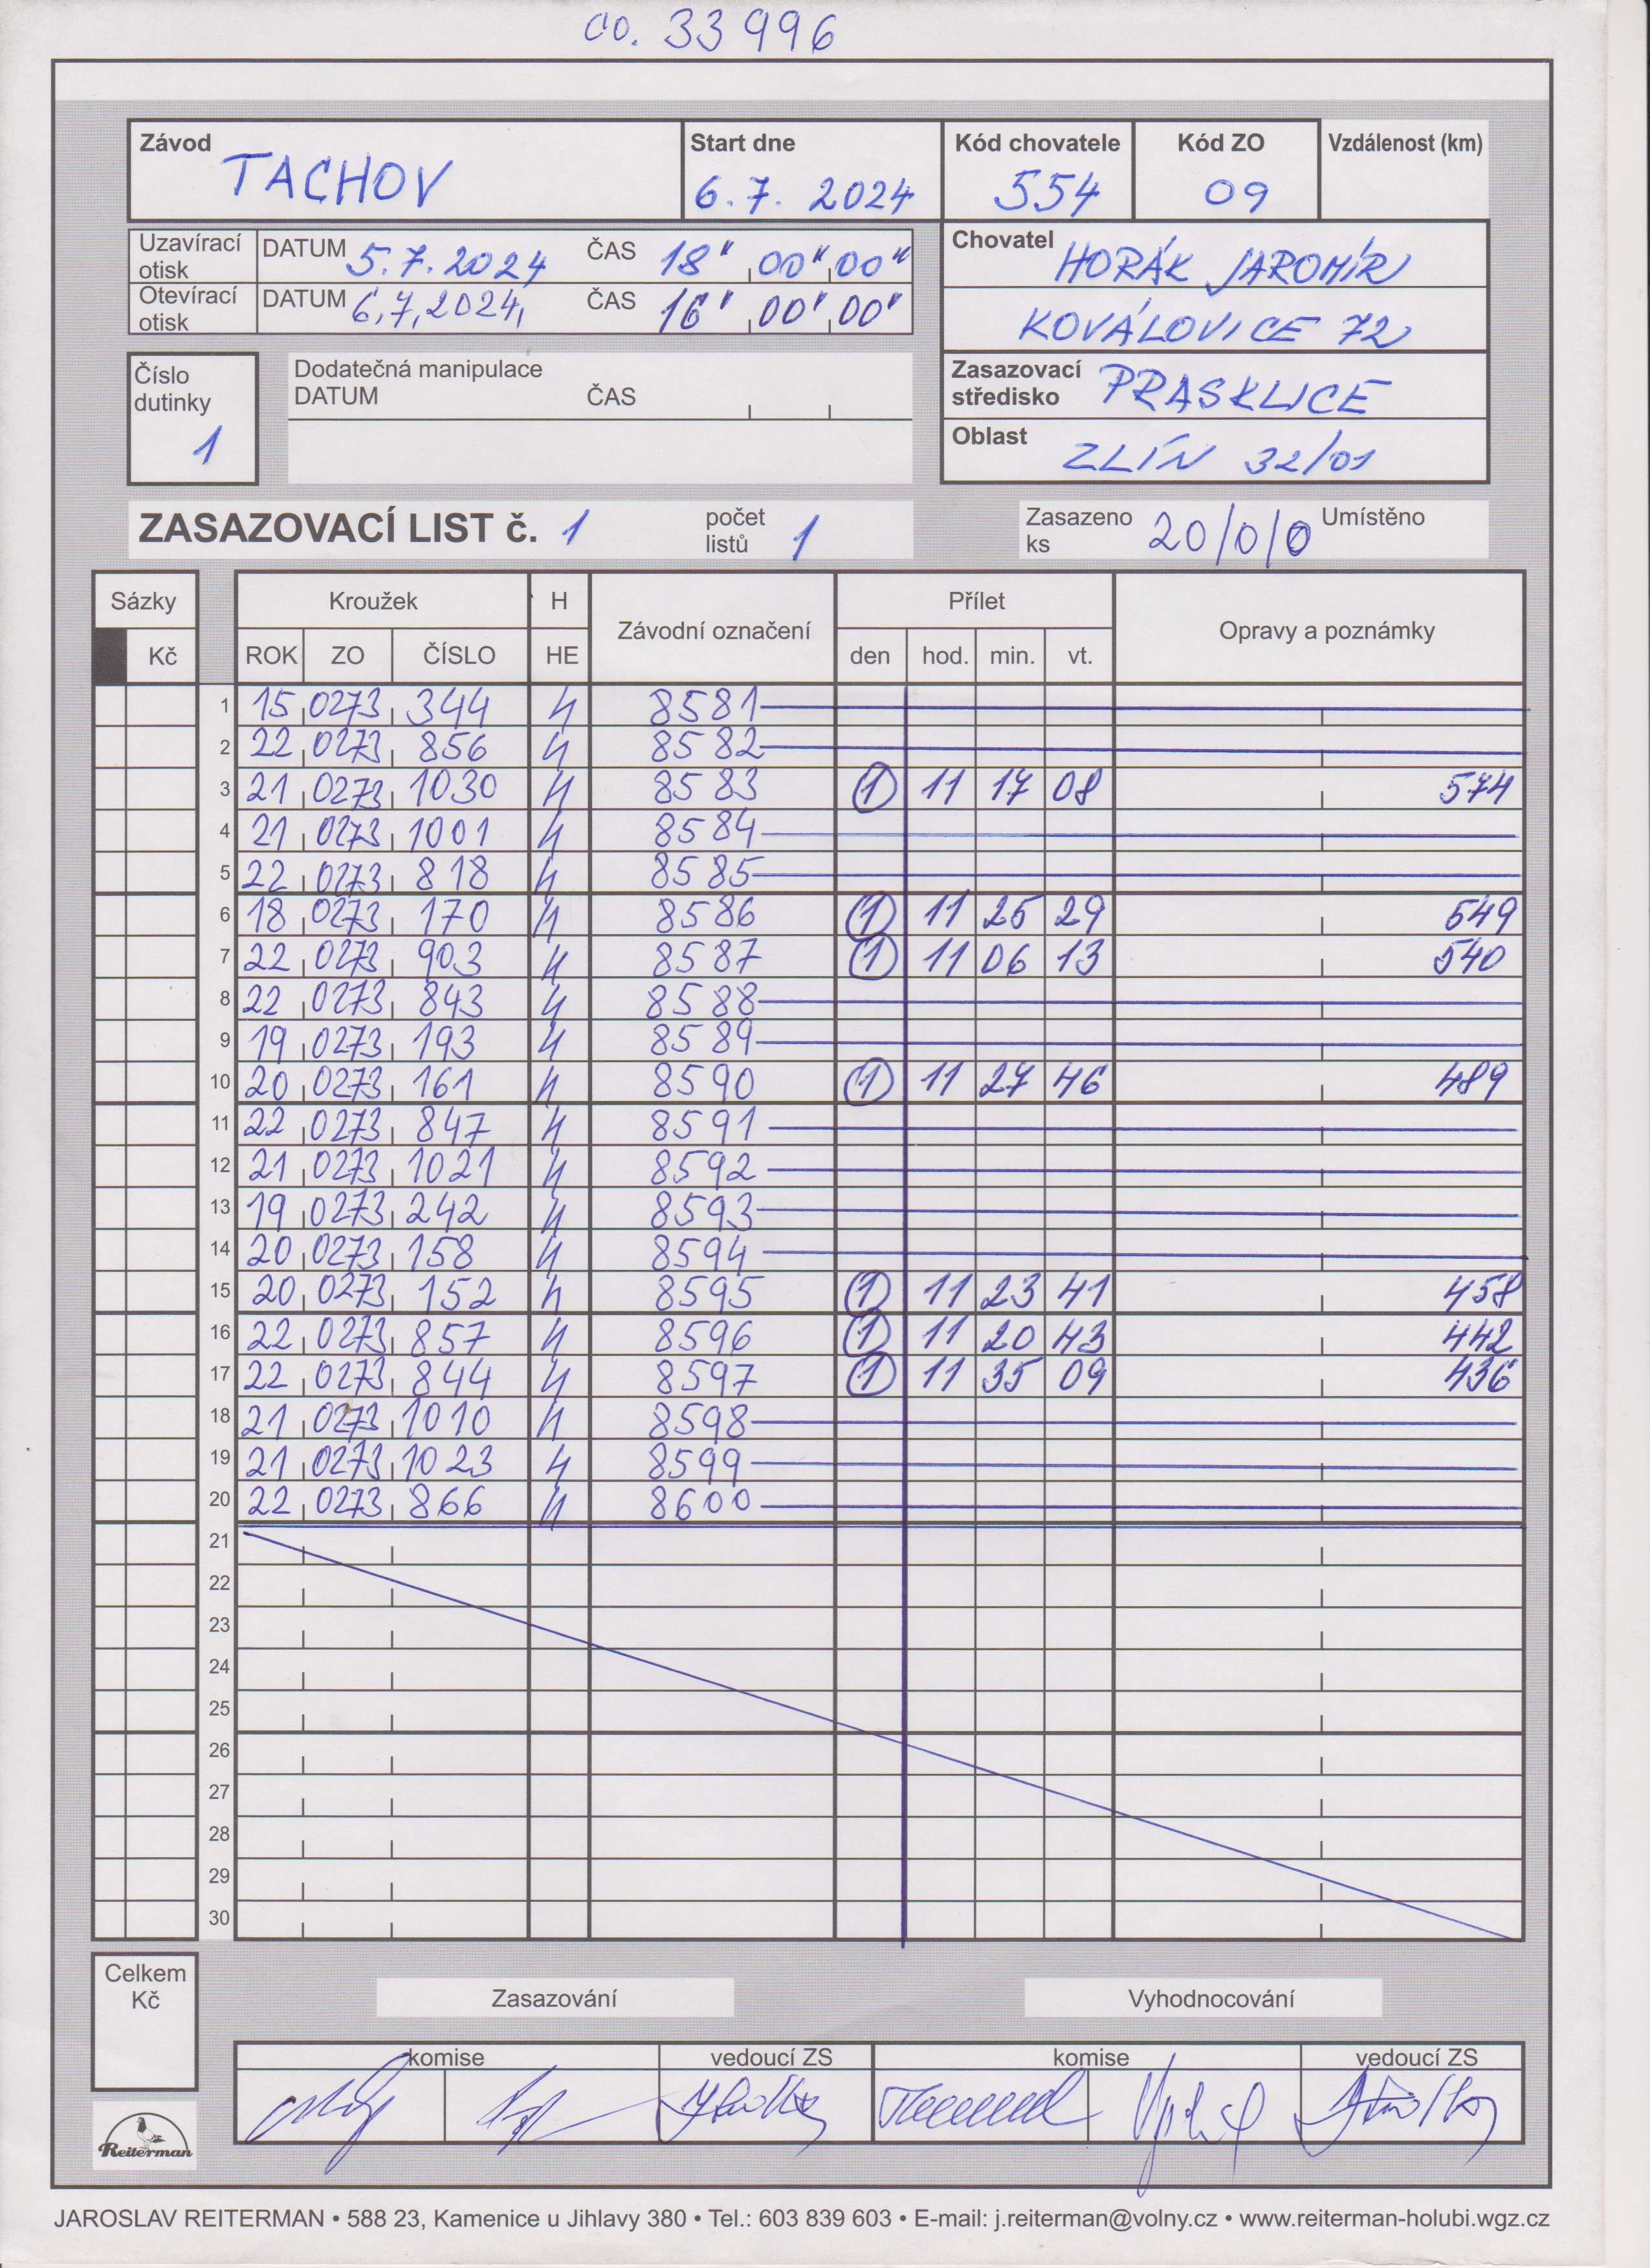 co. 33996
Závod Start dne Kód chovatele Kód ZO Vzdálenost (km)
TACHOV 6.7. 2024 554 09
Uzavírací otisk DATUM 5.7.2024 ČAS 18" 00" 00"
Otevírací otisk DATUM 6,7,2024, ČAS 16" 00" 00"
Chovatel HORÁK JAROMÍR
KOVÁLOVICE 72
Číslo dutinky 1
Dodatečná manipulace
DATUM ČAS
Zasazovací středisko PRASKLICE
Oblast ZLÍN 32/01
ZASAZOVACÍ LIST č. 1 počet listů 1 Zasazeno ks 20/0/0 Umístěno
Sázky Kroužek H Závodní označení Přílet Opravy a poznámky
Kč ROK ZO ČÍSLO HE den hod. min. vt.
1 15 0273 344 H 8581
2 22 0273 856 H 8582
3 21 0273 1030 H 8583 1 11 17 08 574
4 21 0273 1001 H 8584
5 22 0273 818 H 8585
6 18 0273 170 H 8586 1 11 25 29 549
7 22 0273 903 H 8587 1 11 06 13 540
8 22 0273 843 H 8588
9 19 0273 193 H 8589
10 20 0273 161 H 8590 1 11 27 46 489
11 22 0273 847 H 8591
12 21 0273 1021 H 8592
13 19 0273 242 H 8593
14 20 0273 158 H 8594
15 20 0273 152 H 8595 1 11 23 41 458
16 22 0273 857 H 8596 1 11 20 43 442
17 22 0273 844 H 8597 1 11 35 09 436
18 21 0273 1010 H 8598
19 21 0273 1023 H 8599
20 22 0273 866 H 8600
21
22
23
24
25
26
27
28
29
30
Celkem Kč
Zasazování Vyhodnocování
komise vedoucí ZS komise vedoucí ZS
Reiterman
JAROSLAV REITERMAN • 588 23, Kamenice u Jihlavy 380 • Tel.: 603 839 603 • E-mail: j.reiterman@volny.cz • www.reiterman-holubi.wgz.cz